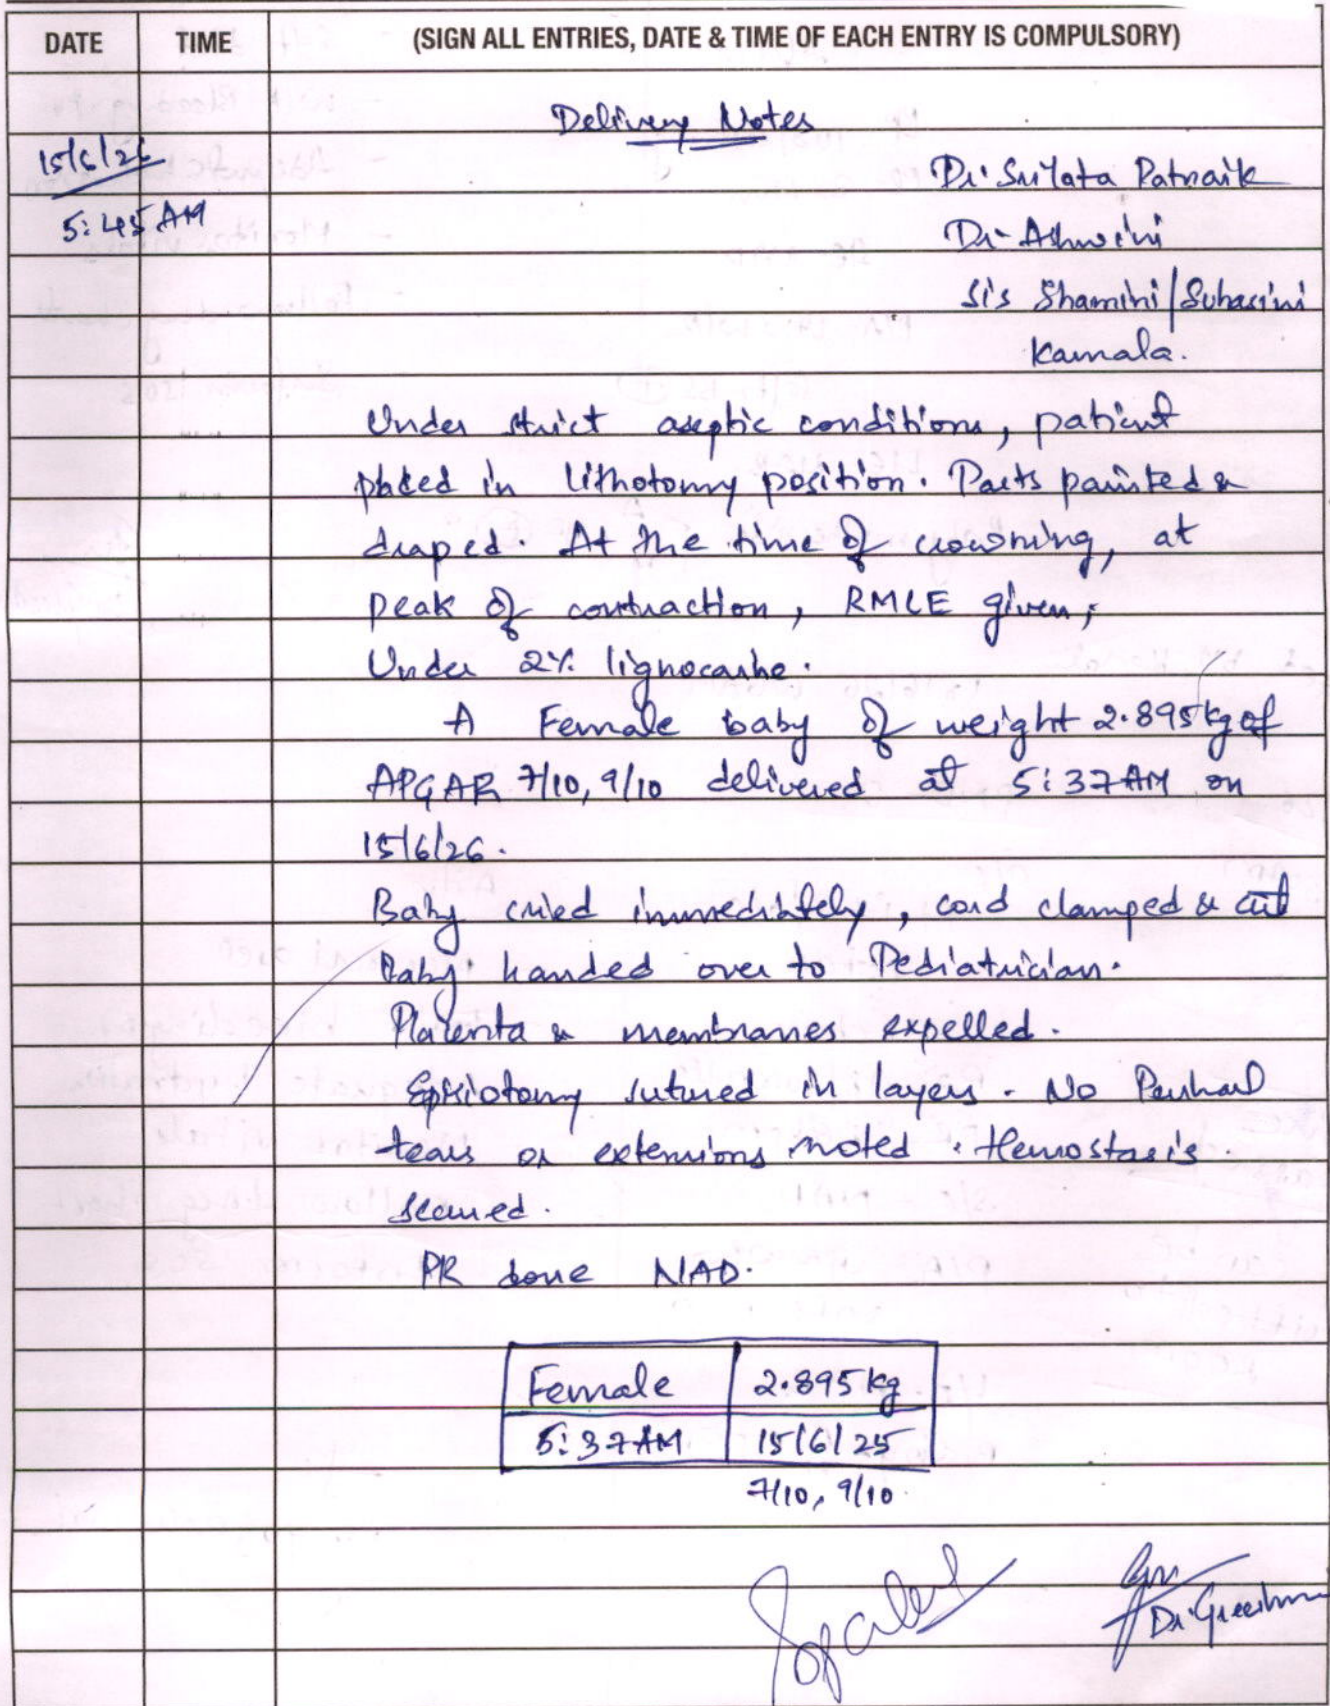 DATE TIME (SIGN ALL ENTRIES, DATE & TIME OF EACH ENTRY IS COMPULSORY)
Delivery Notes
15/6/26
5:45 AM
Dr. Srilata Patnaik
Dr. Ashwini
Sis Shamini/Suhasini
Kamala.
Under strict aseptic conditions, patient
placed in lithotomy position. Parts painted &
draped. At the time of crowning, at
peak of contraction, RMLE given,
Under 2% lignocaine.
A Female baby of weight 2.895kg of
APGAR 7/10, 9/10 delivered at 5:37AM on
15/6/26.
Baby cried immediately, cord clamped & cut
Baby handed over to Pediatrician.
Placenta & membranes expelled.
Episiotomy sutured in layers. No Perineal
tears or extensions noted. Hemostasis
secured.
PR done NAD.
Female 2.895 kg
5:37AM 15/6/25
7/10, 9/10
Dr. Greeshma